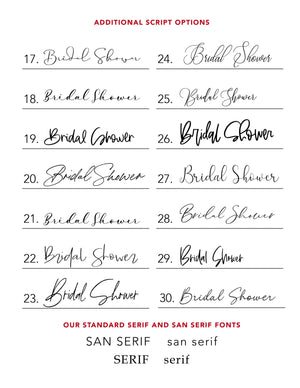 ADDITIONAL SCRIPT OPTIONS
17. Bridal Shower
24. Bridal Shower
18. Bridal Shower
25. Bridal Shower
19. Bridal Shower
26. Bridal Shower
20. Bridal Shower
27. Bridal Shower
21. Bridal Shower
28. Bridal Shower
22. Bridal Shower
29. Bridal Shower
23. Bridal Shower
30. Bridal Shower
OUR STANDARD SERIF AND SAN SERIF FONTS
SAN SERIF san serif
SERIF serif